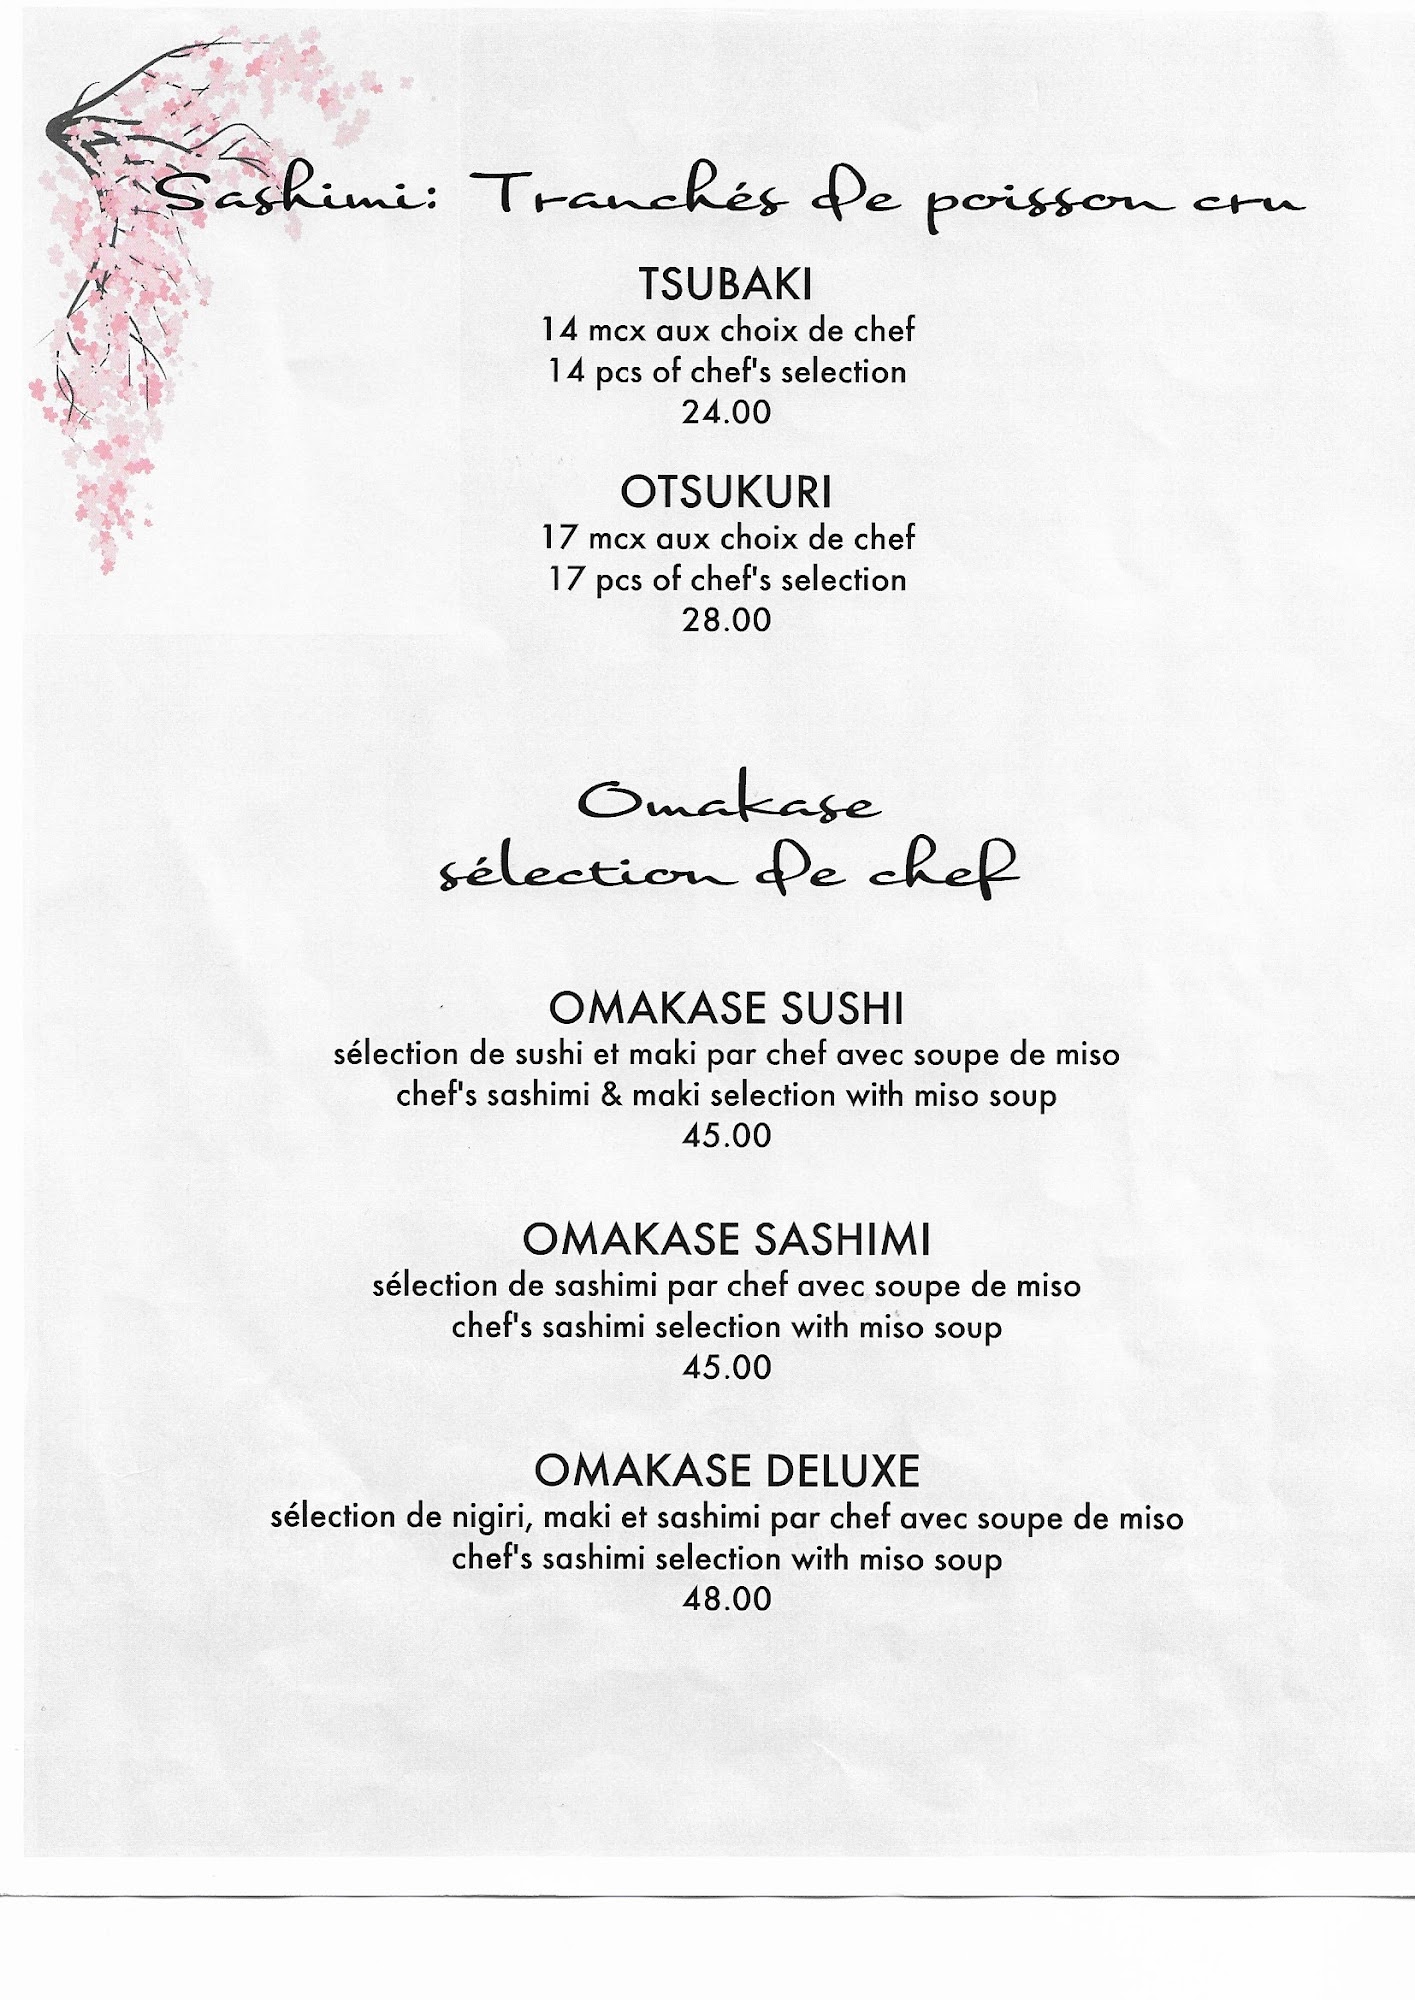 Sashimi: Tranchés de poisson cru
TSUBAKI
14 mcx aux choix de chef
14 pcs of chef's selection
24.00
OTSUKURI
17 mcx aux choix de chef
17 pcs of chef's selection
28.00
Omakase
sélection de chef
OMAKASE SUSHI
sélection de sushi et maki par chef avec soupe de miso
chef's sashimi & maki selection with miso soup
45.00
OMAKASE SASHIMI
sélection de sashimi par chef avec soupe de miso
chef's sashimi selection with miso soup
45.00
OMAKASE DELUXE
sélection de nigiri, maki et sashimi par chef avec soupe de miso
chef's sashimi selection with miso soup
48.00